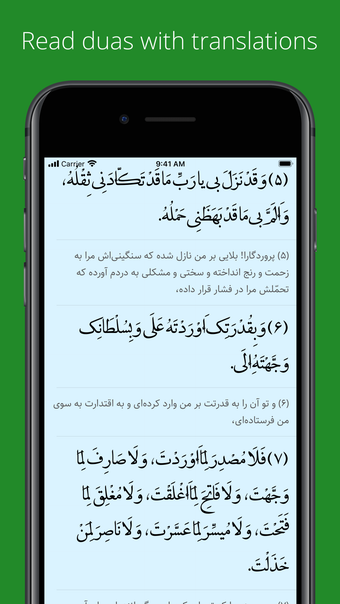 Read duas with translations
Carrier 9:41 AM
(۵) وَ قَدْ نَزَلَ بی یا رَبِّ مَا قَدْ تَکَأَّدَنِی ثِقْلُهُ،
وَ أَلَمَّ بِی مَا قَدْ بَهَظَنِی حَمْلُهُ.
(۵) پروردگارا! بلایی بر من نازل شده که سنگینی‌اش مرا به
زحمت و رنج انداخته و سختی و مشکلی به دردم آورده که
تحمّلش مرا در فشار قرار داده،
(۶) وَ بِقُدْرَتِکَ أَوْرَدْتَهُ عَلَیَّ وَ بِسُلْطَانِکَ
وَجَّهْتَهُ إِلَیَّ.
(۶) و تو آن را به قدرتت بر من وارد کرده‌ای و به اقتدارت به سوی
من فرستاده‌ای،
(۷) فَلَا مُصْدِرَ لِمَا أَوْرَدْتَ، وَ لَا صَارِفَ لِمَا
وَجَّهْتَ، وَ لَا فَاتِحَ لِمَا أَغْلَقْتَ، وَ لَا مُغْلِقَ لِمَا
فَتَحْتَ، وَ لَا مُیَسِّرَ لِمَا عَسَّرْتَ، وَ لَا نَاصِرَ لِمَنْ
خَذَلْتَ.